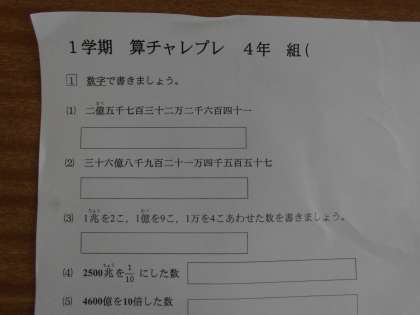 1学期 算チャレプレ 4年 組(
1 数字で書きましょう。
(1) 二億五千七百三十二万二千六百四十一
(2) 三十六億八千九百二十一万四千五百五十七
(3) 1兆を2こ、1億を9こ、1万を4こあわせた数を書きましょう。
(4) 2500兆を1/10にした数
(5) 4600億を10倍した数